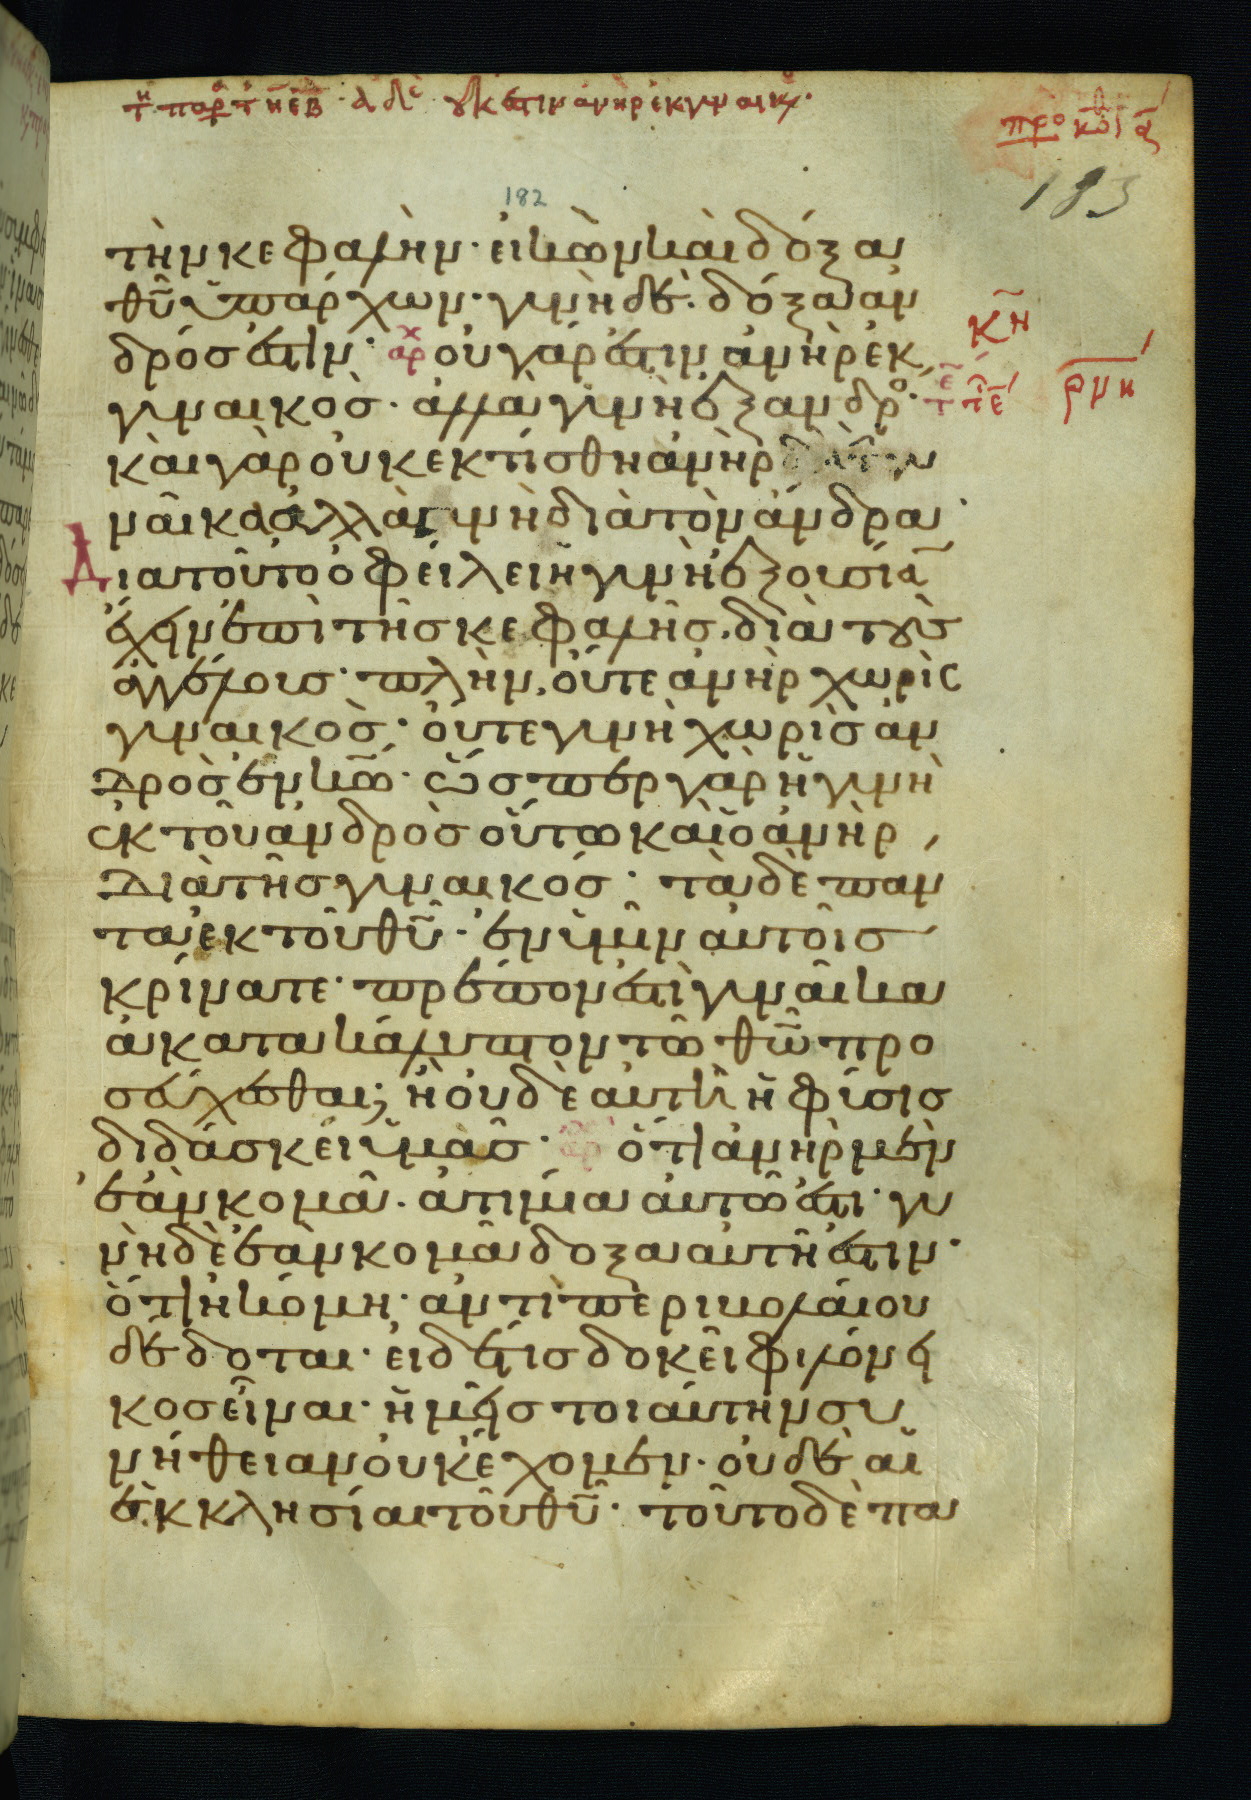 προ κοῤ α
183
182
τὴν κεφαλὴν· εἰκὼν καὶ δόξα
θῦ ὑπάρχων· γυνὴ δὲ· δόξα ἀν
δρόσ ἐστιν· αρχ οὐ γάρ ἐστιν ἀνὴρ ἐκ
κη
γυναικὸσ· ἀλλὰ γυνὴ ἐξ ἀνδρο·
ρμη
καὶ γὰρ οὐκ ἐκτίσθη ἀνὴρ διὰ τὴν
ναῖκα ἀλλὰ γυνὴ διὰ τὸν ἄνδρα·
Διατοῦτο ὀφείλει ἡ γυνὴ ἐξουσία
ἔχειν ἐπὶ τῆσ κεφαλῆσ· διὰ τοὺσ
ἀγγέλουσ· πλὴν, οὔτε ἀνὴρ χωρὶσ
γυναικὸσ· οὔτε γυνὴ χωρὶσ ἀν
δρὸσ ἐν κω· ὥσπερ γὰρ ἡ γυνὴ
ἐκ τοῦ ἀνδρὸσ οὕτω καὶ ὁ ἀνὴρ,
διὰ τῆσ γυναικόσ· τὰ δὲ παν
τα ἐκ τοῦ θῦ· ἐν ὑμῖν αὐτοῖσ
κρίνατε· πρέπον ἐστὶ γυναῖκα
ἀκατακάλυπτον τῶ θῶ προ
σεύχεσθαι; ἢ οὐδὲ αὐτὴ ἡ φύσισ
διδάσκει ὑμᾶσ· ὅτι ἀνὴρ μὲν
ἐὰν κομᾶ· ἀτιμία αὐτῶ ἐστι· γυ
νὴ δὲ ἐὰν κομᾶ δόξα αὐτῆ ἐστιν·
ὅτι ἡ κόμη· ἀντὶ περιβολαίου
δέδοται· εἰ δέ τισ δοκεῖ φιλόνει
κοσ εἶναι· ἡμεῖσ τοιαύτην συ
νήθειαν οὐκ ἔχομεν· οὐδὲ αἱ
ἐκκλησίαι τοῦ θῦ· τοῦτο δὲ πα